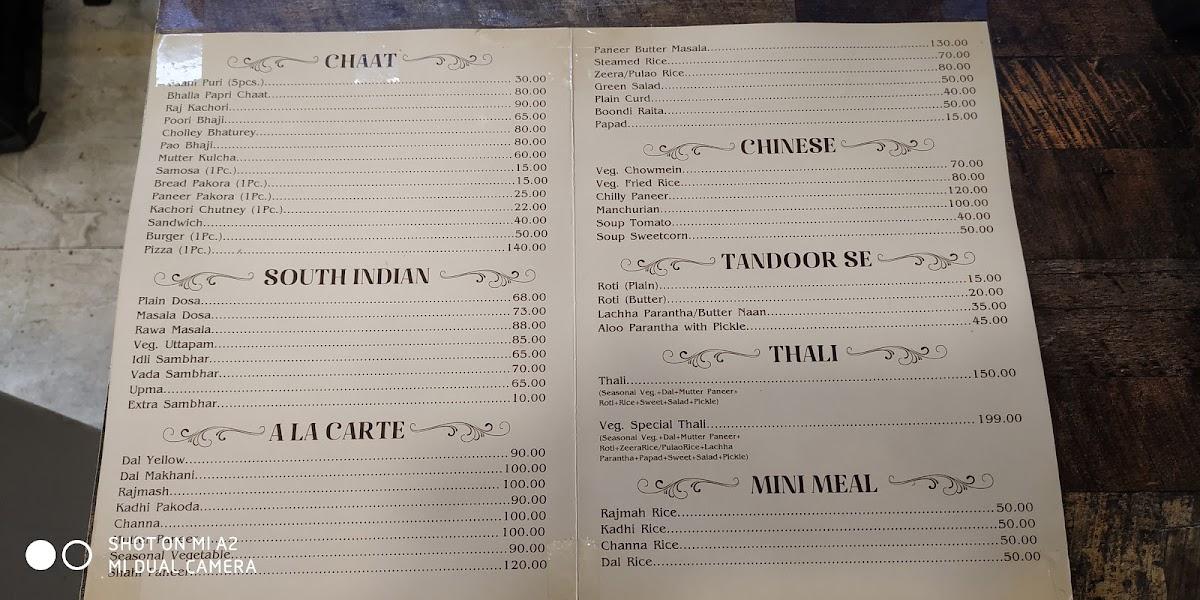 CHAAT
Puri (5pcs.) 30.00
Bhalla Papri Chaat 80.00
Raj Kachori 90.00
Poori Bhaji 65.00
Cholley Bhaturey 80.00
Pao Bhaji 80.00
Mutter Kulcha 60.00
Samosa (1Pc.) 15.00
Bread Pakora (1Pc.) 15.00
Paneer Pakora (1Pc.) 25.00
Kachori Chutney (1Pc.) 22.00
Sandwich 40.00
Burger (1Pc.) 50.00
Pizza (1Pc.) 140.00
SOUTH INDIAN
Plain Dosa 68.00
Masala Dosa 73.00
Rawa Masala 88.00
Veg. Uttapam 85.00
Idli Sambhar 65.00
Vada Sambhar 70.00
Upma 65.00
Extra Sambhar 10.00
A LA CARTE
Dal Yellow 90.00
Dal Makhani 100.00
Rajmash 100.00
Kadhi Pakoda 90.00
Channa 100.00
100.00
Seasonal Vegetable 90.00
Shahi Paneer 120.00
Paneer Butter Masala 130.00
Steamed Rice 70.00
Zeera/Pulao Rice 80.00
Green Salad 50.00
Plain Curd 40.00
Boondi Raita 50.00
Papad 15.00
CHINESE
Veg. Chowmein 70.00
Veg. Fried Rice 80.00
Chilly Paneer 120.00
Manchurian 100.00
Soup Tomato 40.00
Soup Sweetcorn 50.00
TANDOOR SE
Roti (Plain) 15.00
Roti (Butter) 20.00
Lachha Parantha/Butter Naan 35.00
Aloo Parantha with Pickle 45.00
THALI
Thali 150.00
(Seasonal Veg.+Dal+Mutter Paneer+
Roti+Rice+Sweet+Salad+Pickle)
Veg. Special Thali 199.00
(Seasonal Veg.+Dal+Mutter Paneer+
Roti+ZeeraRice/PulaoRice+Lachha
Parantha+Papad+Sweet+Salad+Pickle)
MINI MEAL
Rajmah Rice 50.00
Kadhi Rice 50.00
Channa Rice 50.00
Dal Rice 50.00
SHOT ON MI A2
MI DUAL CAMERA